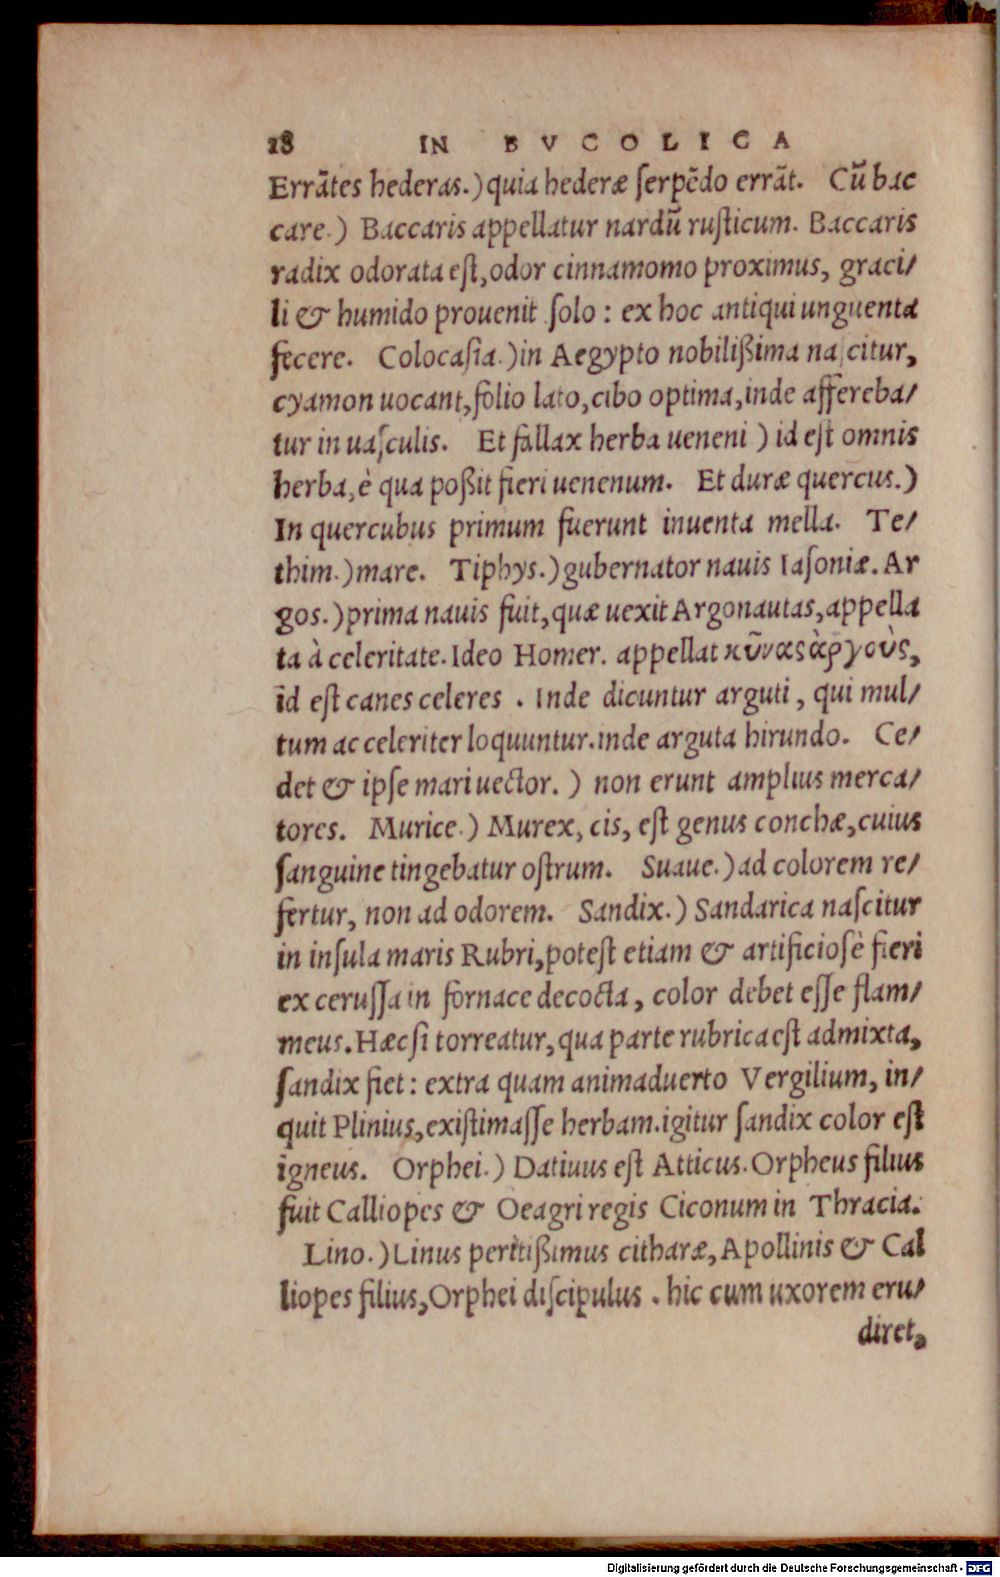 18 IN BVCOLICA
Errãtes hederas.) quia hederæ ſerpẽdo errãt. Cũ bac
care.) Baccaris appellatur nardũ ruſticum. Baccaris
radix odorata eſt, odor cinnamomo proximus, graci/
li & humido prouenit ſolo : ex hoc antiqui unguenta
fecere. Colocaſia.) in Aegypto nobilißima naſcitur,
cyamon uocant, folio lato, cibo optima, inde affereba/
tur in uaſculis. Et fallax herba ueneni ) id eſt omnis
herba, è qua poßit fieri uenenum. Et duræ quercus.)
In quercubus primum fuerunt inuenta mella. Te/
thim.) mare. Tiphys.) gubernator nauis Iaſoniæ. Ar
gos.) prima nauis fuit, quæ uexit Argonautas, appella
ta à celeritate. Ideo Homer. appellat κῦνας ἀργοὺς,
id eſt canes celeres . Inde dicuntur arguti , qui mul/
tum ac celeriter loquuntur. inde arguta hirundo. Ce/
det & ipſe mari uector. ) non erunt amplius merca/
tores. Murice.) Murex, cis, eſt genus conchæ, cuius
ſanguine tingebatur oſtrum. Suaue.) ad colorem re/
fertur, non ad odorem. Sandix.) Sandarica naſcitur
in inſula maris Rubri, poteſt etiam & artificioſè fieri
ex ceruſſa in fornace decocta , color debet eſſe flam/
meus. Hæc ſi torreatur, qua parte rubrica eſt admixta,
ſandix fiet : extra quam animaduerto Vergilium, in/
quit Plinius, exiſtimaſſe herbam. igitur ſandix color eſt
igneus. Orphei.) Datiuus eſt Atticus. Orpheus filius
fuit Calliopes & Oeagri regis Ciconum in Thracia.
Lino.) Linus peritißimus citharæ, Apollinis & Cal
liopes filius, Orphei diſcipulus . hic cum uxorem eru/
diret,
Digitalisierung gefördert durch die Deutsche Forschungsgemeinschaft - DFG